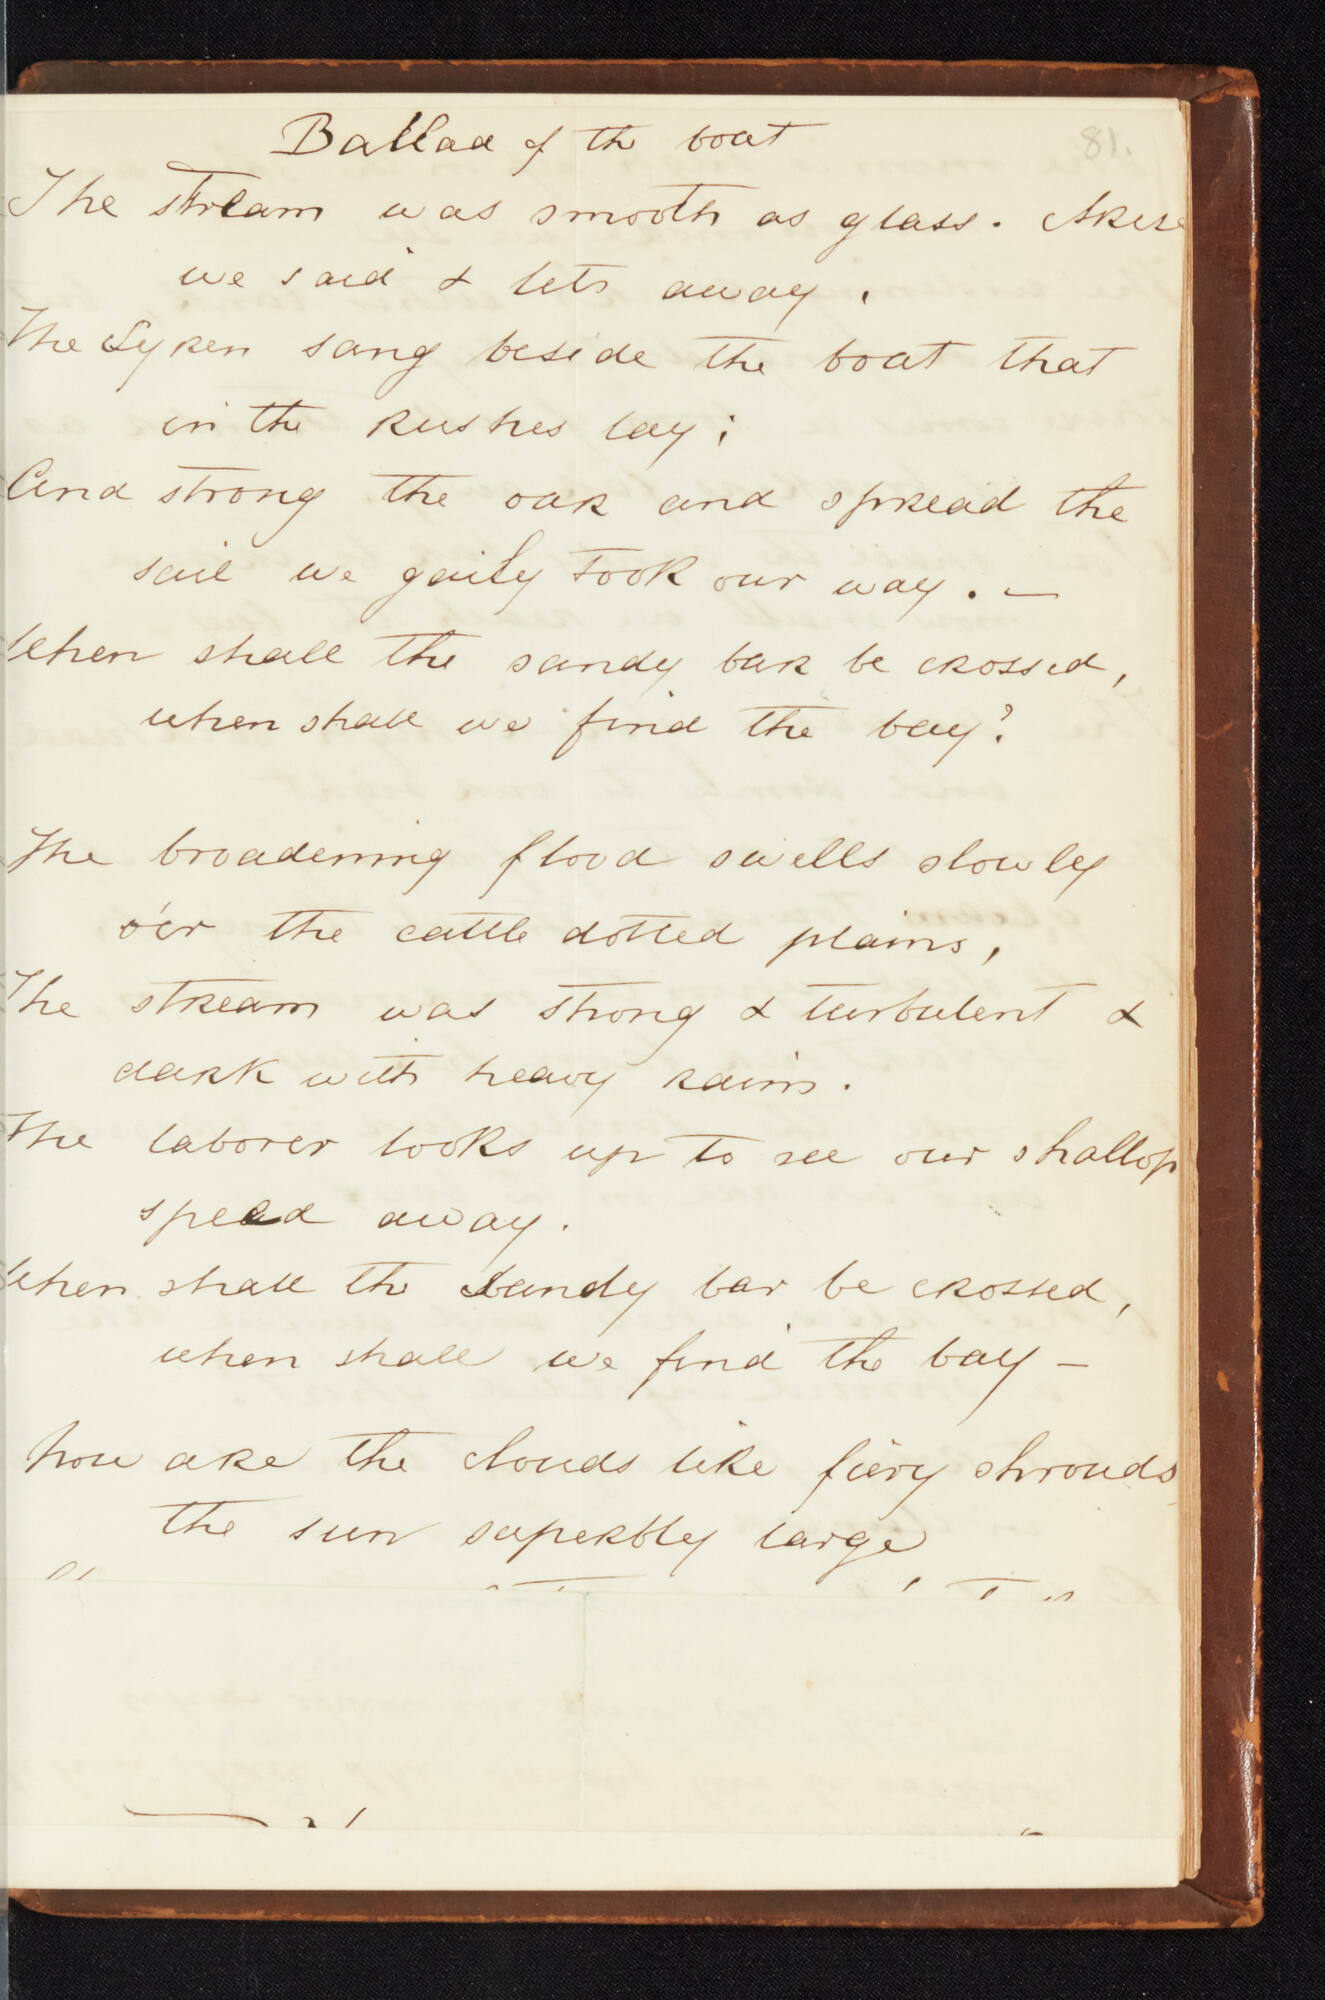 81.
Ballad of the boat
The stream was smooth as glass. Arise
we said & lets away.
The Syren sang beside the boat that
in the rushes lay;
And strong the oar and spread the
sail we gaily took our way. —
When shall the sandy bar be crossed,
when shall we find the bay?
The broadening flood swells slowly
o'er the cattle dotted plains,
The stream was strong & turbulent &
dark with heavy rains.
The laborer looks up to see our shallop
speed away.
When shall the sandy bar be crossed,
when shall we find the bay —
Now are the clouds like fiery shrouds
the sun superbly large